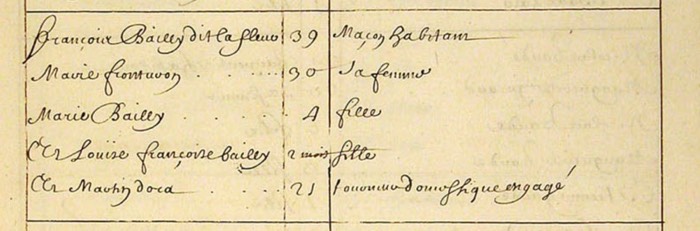 françois Bailly dit la fleur 39 Maçon habitant
Marie fontuvon 30 Sa femme
Marie Bailly 4 fille
Et Louise françoise bailly 2 mois fille
Et Martin 21 domestique engagé